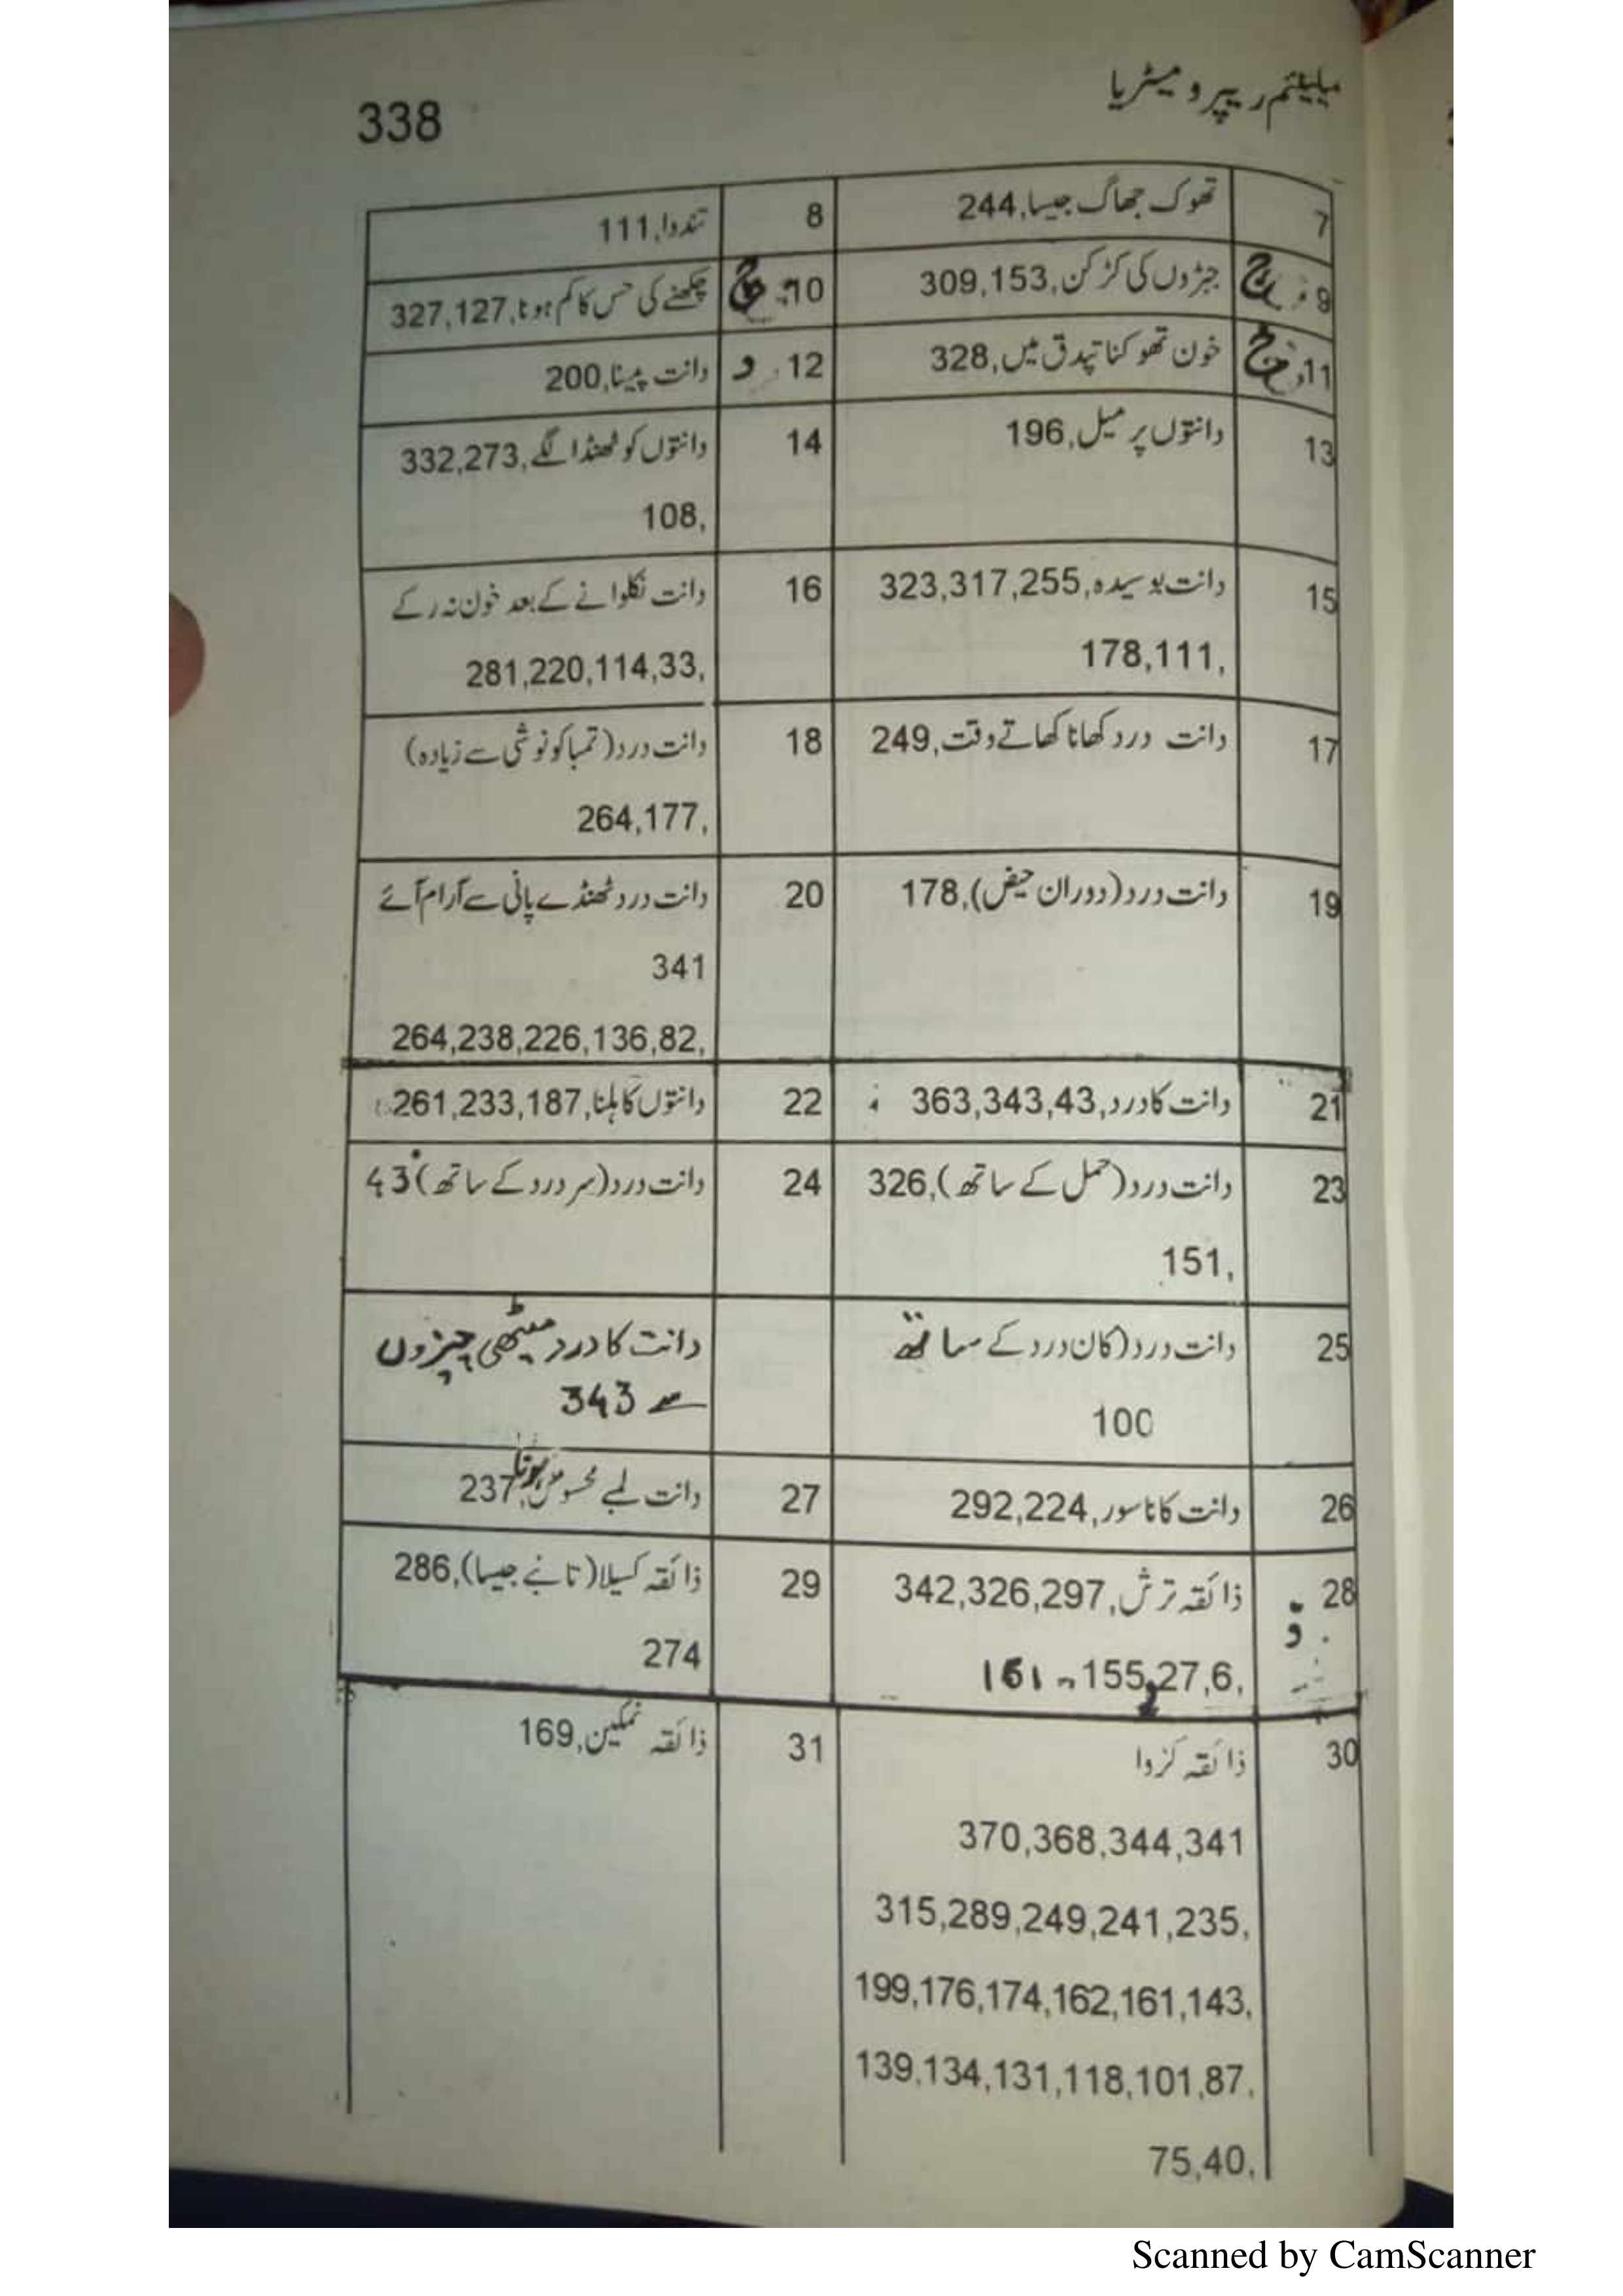 میلینیم ریپرومیٹریا
338
7 تھوک جھاگ جیسا,244
8 تندوا,111
9 جبڑوں کی کڑکن,309,153
10 چکھنے کی حس کا کم ہونا,327,127
11 خون تھوکنا تپدق میں,328
12 و دانت پیسنا,200
13 دانتوں پر میل,196
14 دانتوں کو ٹھنڈا لگے,332,273
108,
15 دانت بوسیدہ,323,317,255
178,111,
16 دانت نکلوانے کے بعد خون نہ رکے
281,220,114,33,
17 دانت درد کھانا کھاتے وقت,249
18 دانت درد(تمباکو نوشی سے زیادہ)
264,177,
19 دانت درد(دوران حیض),178
20 دانت درد ٹھنڈے پانی سے آرام آئے
341
264,238,226,136,82,
21 دانت کا درد,363,343,43
22 دانتوں کا ہلنا,261,233,187
23 دانت درد(حمل کے ساتھ),326
151,
24 دانت درد(سر درد کے ساتھ)43
25 دانت درد(کان درد کے ساتھ
100
دانت کا درد میٹھی چیزوں
سے 343
26 دانت کا ناسور,292,224
27 دانت لمبے محسوس ہونا,237
28 ذائقہ ترش,342,326,297
161,155,27,6,
29 ذائقہ کسیلا(تانبے جیسا),286
274
30 ذائقہ کڑوا
370,368,344,341
315,289,249,241,235,
199,176,174,162,161,143,
139,134,131,118,101,87,
75,40,
31 ذائقہ نمکین,169
Scanned by CamScanner